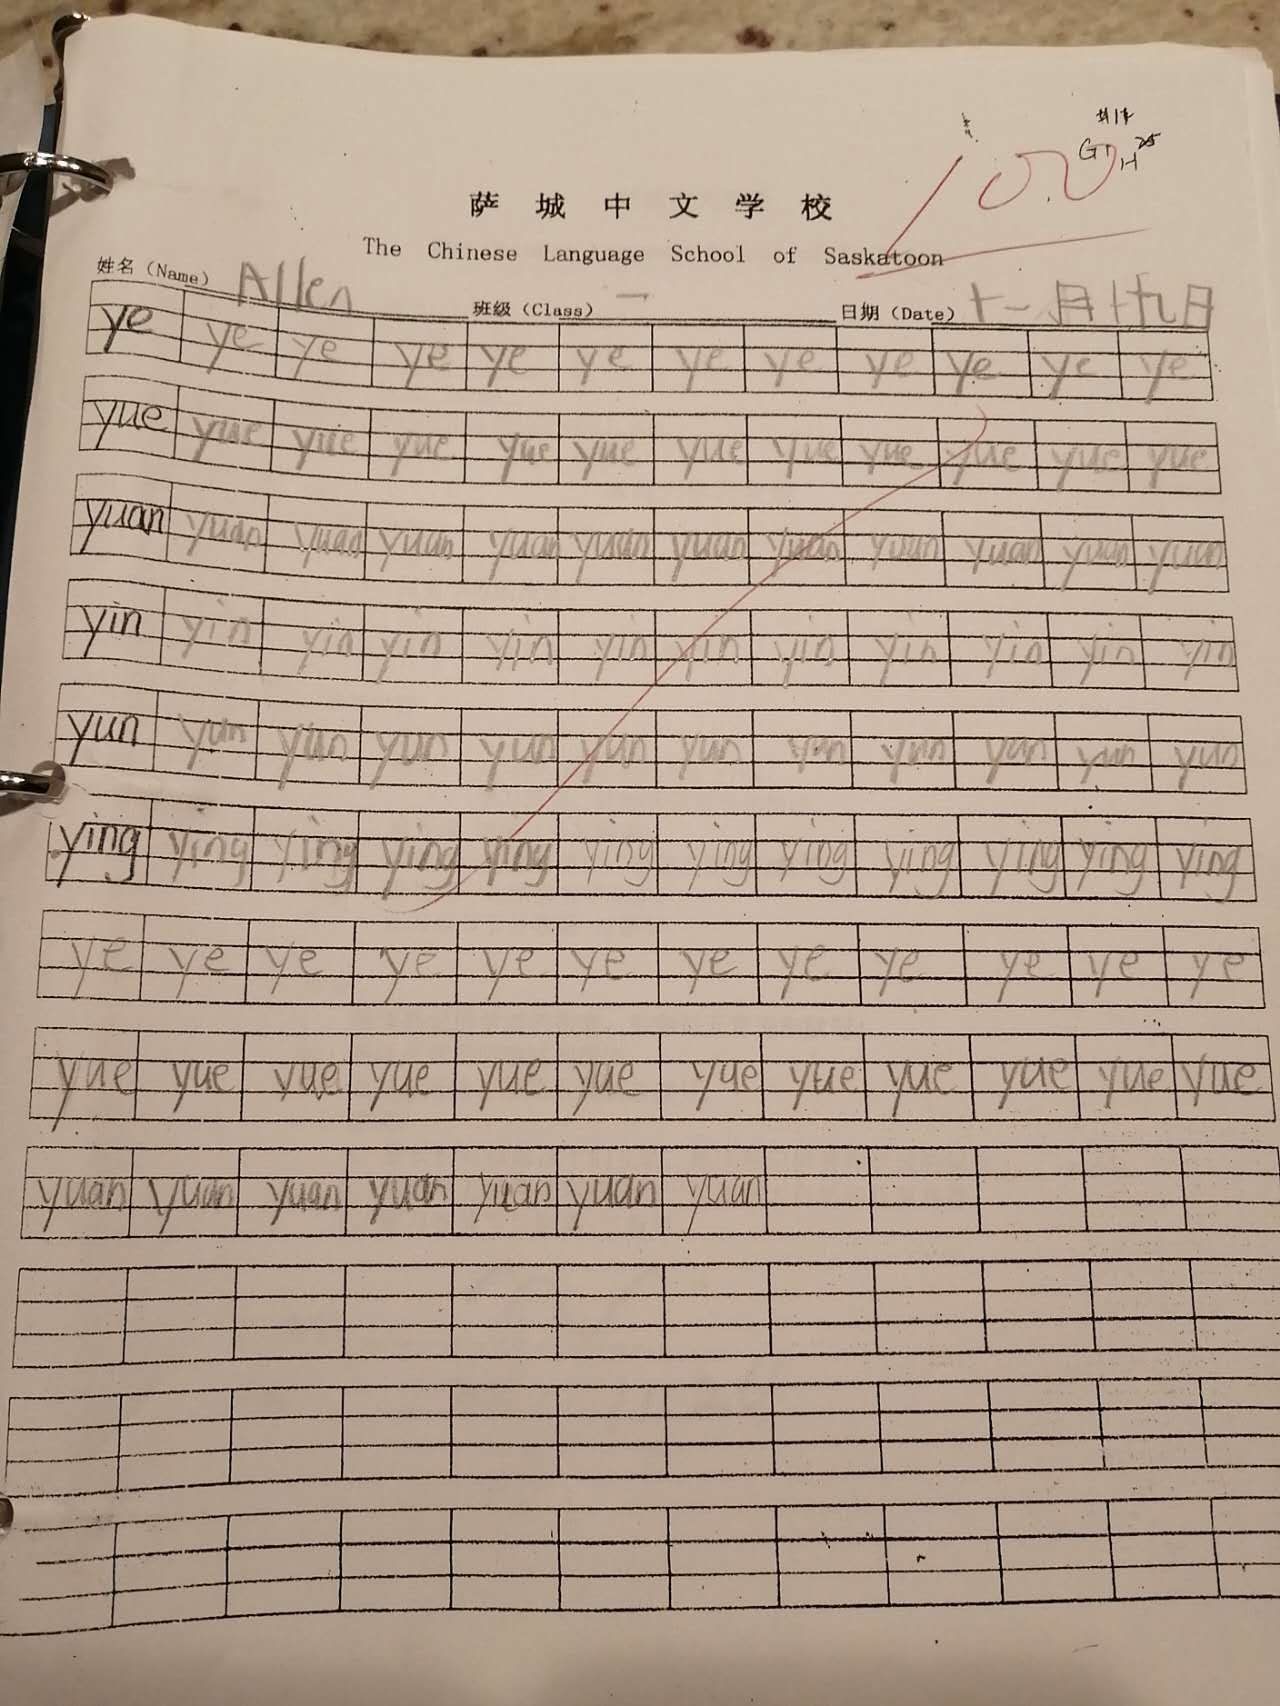 100
萨城中文学校
The Chinese Language School of Saskatoon
姓名(Name) Allen 班级(Class) 一 日期(Date) 十一月十九日
ye ye ye ye ye ye ye ye ye ye ye ye
yue yue yue yue yue yue yue yue yue yue yue yue
yuan yuan yuan yuan yuan yuan yuan yuan yuan yuan yuan yuan
yin yin yin yin yin yin yin yin yin yin yin yin
yun yun yun yun yun yun yun yun yun yun yun yun
ying ying ying ying ying ying ying ying ying ying ying ying
ye ye ye ye ye ye ye ye ye ye ye ye
yue yue yue yue yue yue yue yue yue yue yue yue
yuan yuan yuan yuan yuan yuan yuan